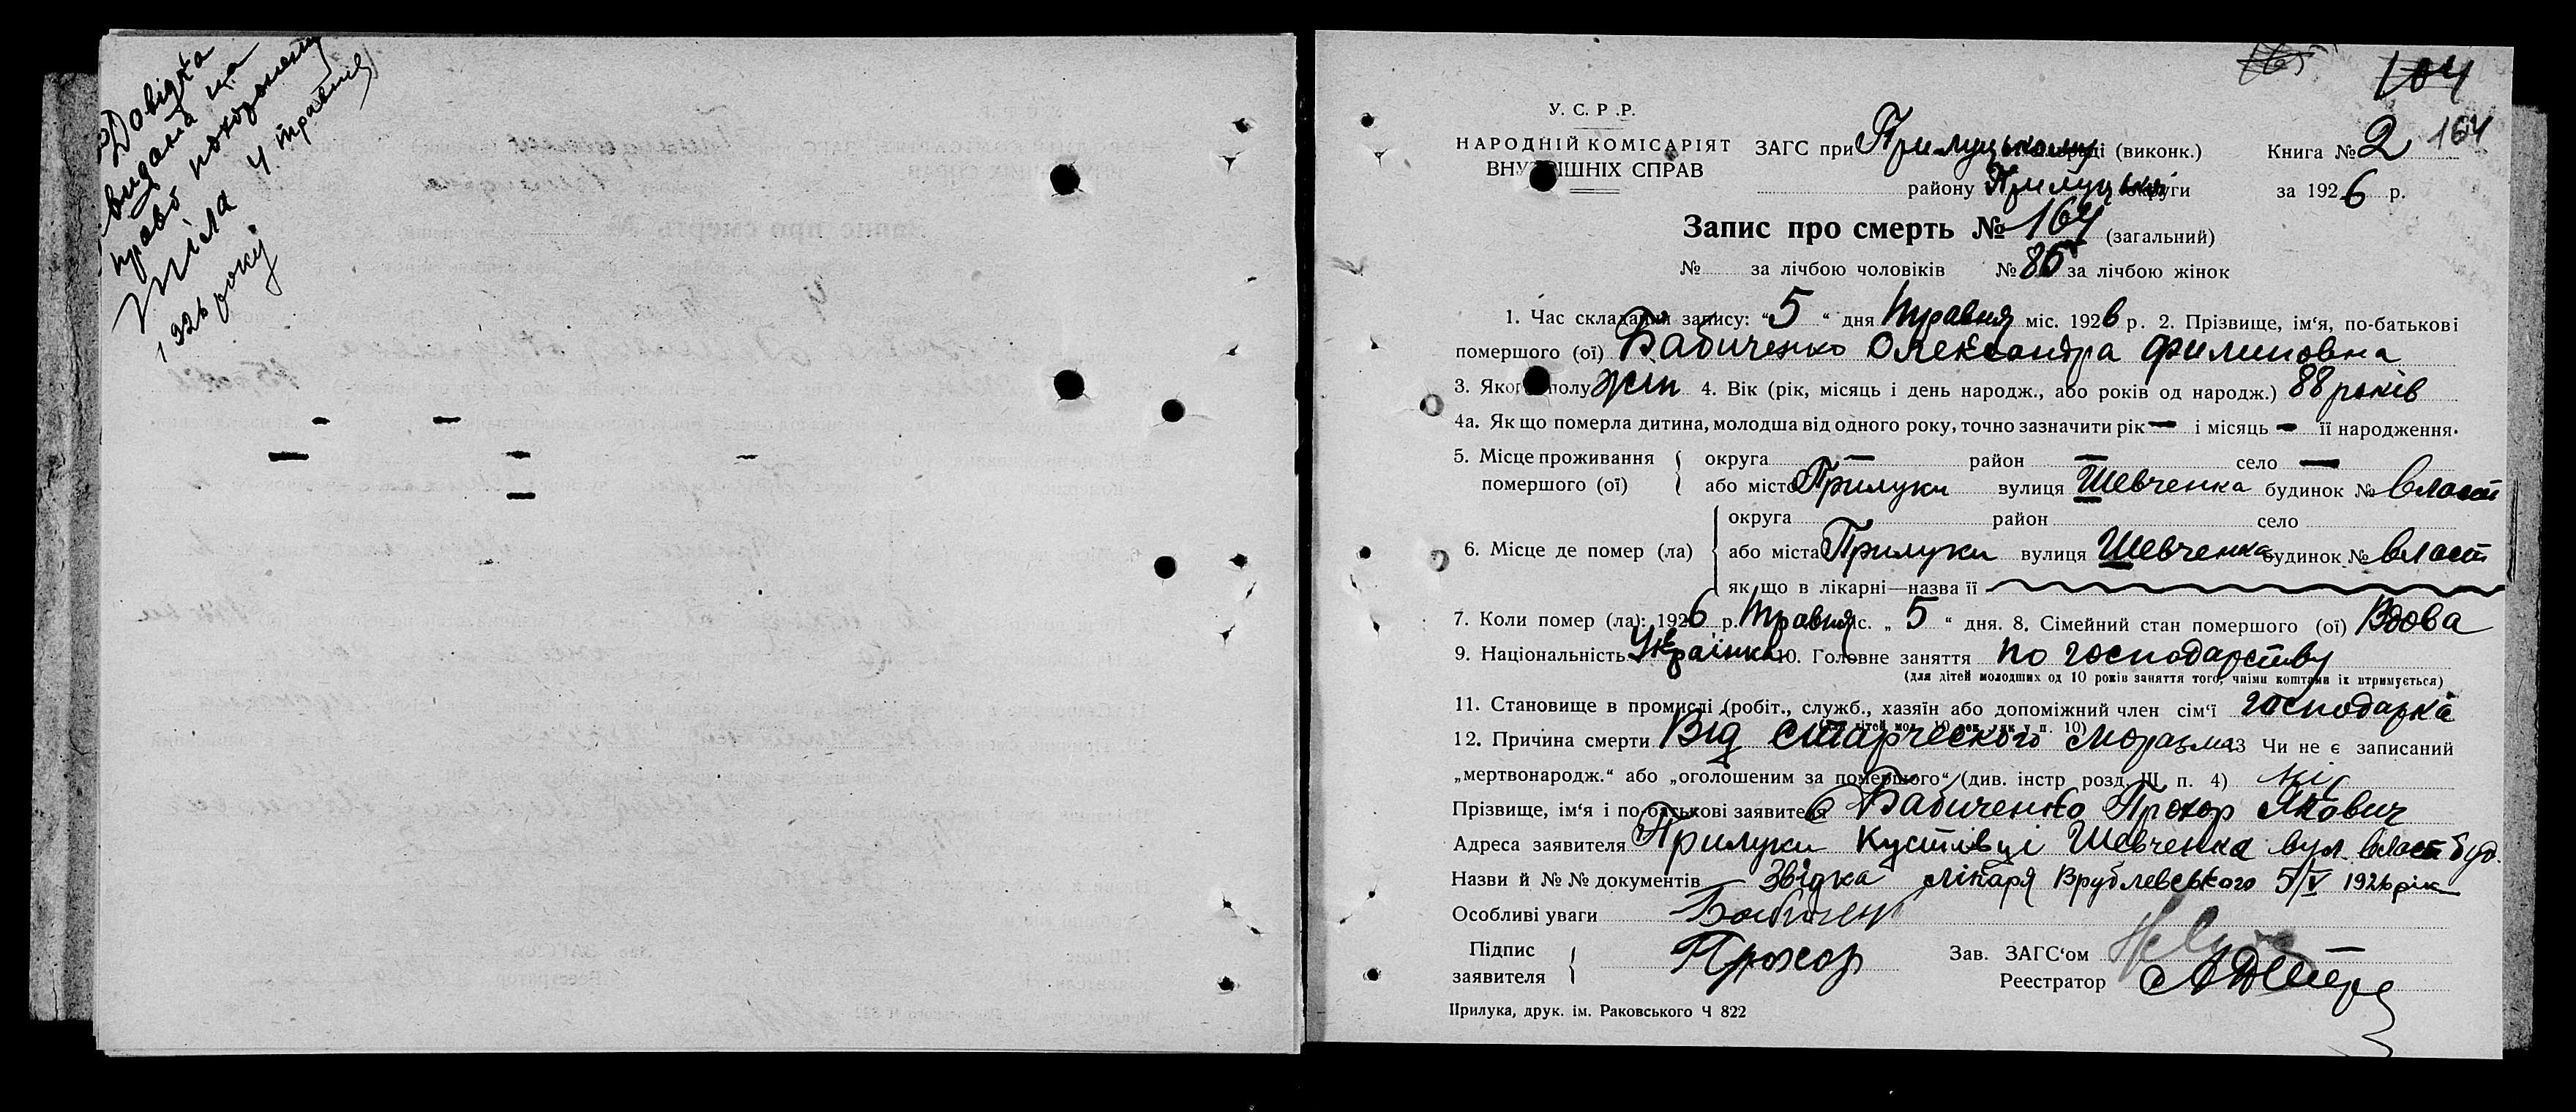 Довідка
видана на
право похорону
тіла 4 травня
1926 року
104
164
У. С. Р. Р.
НАРОДНІЙ КОМІСАРІЯТ
ВНУТРІШНІХ СПРАВ
ЗАГС при Прилуцькому (виконк.)
району Прилуцької округи
Книга № 2
за 1926 р.
Запис про смерть № 164 (загальний)
№ за лічбою чоловіків № 86 за лічбою жінок
1. Час складання запису: "5" дня травня міс. 1926 р. 2. Прізвище, ім'я, по-батькові
помершого (ої) Бабиченко Олександра Филиповна
3. Якого полу жін 4. Вік (рік, місяць і день народж., або років од народж.) 88 років
4а. Як що померла дитина, молодша від одного року, точно зазначити рік — і місяць — її народження.
5. Місце проживання помершого (ої) { округа — район — село —
або місто Прилуки вулиця Шевченка будинок № власн
6. Місце де помер (ла) { округа район село
або міста Прилуки вулиця Шевченка будинок № власт
як що в лікарні—назва її
7. Коли помер (ла): 1926 р. травня міс. „ 5 “ дня. 8. Сімейний стан помершого (ої) Вдова
9. Національність Українка 10. Головне заняття по господарству
(для дітей молодших од 10 років заняття того, чиїми коштами їх втримується)
11. Становище в промислі (робіт., служб., хазяїн або допоміжний член сім'ї господарка
12. Причина смерти Від старческого моразма 13 Чи не є записаний
„мертвонародж.“ або „оголошеним за помершого“ (див. інстр розд. III п. 4) ні
Прізвище, ім'я і по-батькові заявителя Бабиченко Прохор Якович
Адреса заявителя Прилуки Кустівці Шевченка вул. власт буд.
Назви й №№ документів Звідка лікаря Врублевського 5/V 1926 рік
Особливі уваги Бабичен
Підпис заявителя } Прохор
Зав. ЗАГС'ом
Реєстратор
Прилука, друк. ім. Раковського Ч 822